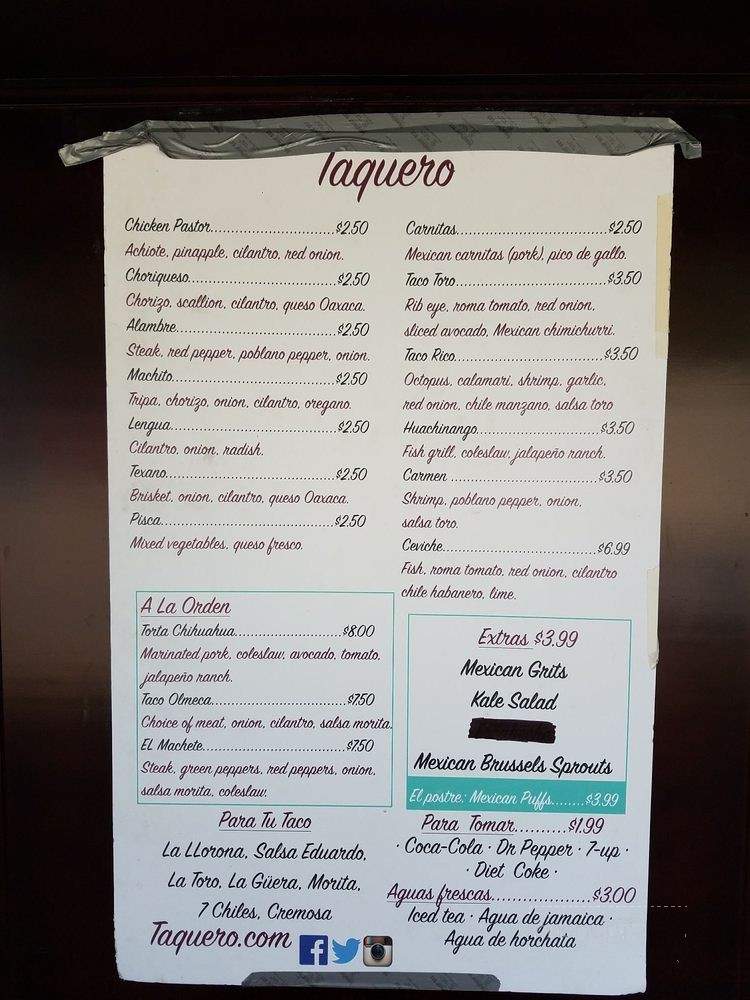 Taquero
Chicken Pastor..............................$2.50
Achiote, pinapple, cilantro, red onion.
Choriqueso..............................$2.50
Chorizo, scallion, cilantro, queso Oaxaca.
Alambre..............................$2.50
Steak, red pepper, poblano pepper, onion.
Machito..............................$2.50
Tripa, chorizo, onion, cilantro, oregano.
Lengua..............................$2.50
Cilantro, onion, radish.
Texano..............................$2.50
Brisket, onion, cilantro, queso Oaxaca.
Pisca..............................$2.50
Mixed vegetables, queso fresco.
Carnitas..............................$2.50
Mexican carnitas (pork), pico de gallo.
Taco Toro..............................$3.50
Rib eye, roma tomato, red onion,
sliced avocado, Mexican chimichurri.
Taco Rico..............................$3.50
Octopus, calamari, shrimp, garlic,
red onion, chile manzano, salsa toro
Huachinango..............................$3.50
Fish grill, coleslaw, jalapeño ranch.
Carmen ..............................$3.50
Shrimp, poblano pepper, onion,
salsa toro.
Ceviche..............................$6.99
Fish, roma tomato, red onion, cilantro
chile habanero, lime.
A La Orden
Torta Chihuahua........................$8.00
Marinated pork, coleslaw, avocado, tomato,
jalapeño ranch.
Taco Olmeca..............................$7.50
Choice of meat, onion, cilantro, salsa morita.
EL Machete..............................$7.50
Steak, green peppers, red peppers, onion,
salsa morita, coleslaw.
Extras $3.99
Mexican Grits
Kale Salad
Mexican Brussels Sprouts
El postre: Mexican Puffs........$3.99
Para Tu Taco
La LLorona, Salsa Eduardo,
La Toro, La Güera, Morita,
7 Chiles, Cremosa
Para Tomar..........$1.99
· Coca-Cola · Dr Pepper · 7-up ·
· Diet Coke ·
Aguas frescas....................$3.00
Iced tea · Agua de jamaica ·
Agua de horchata
Taquero.com